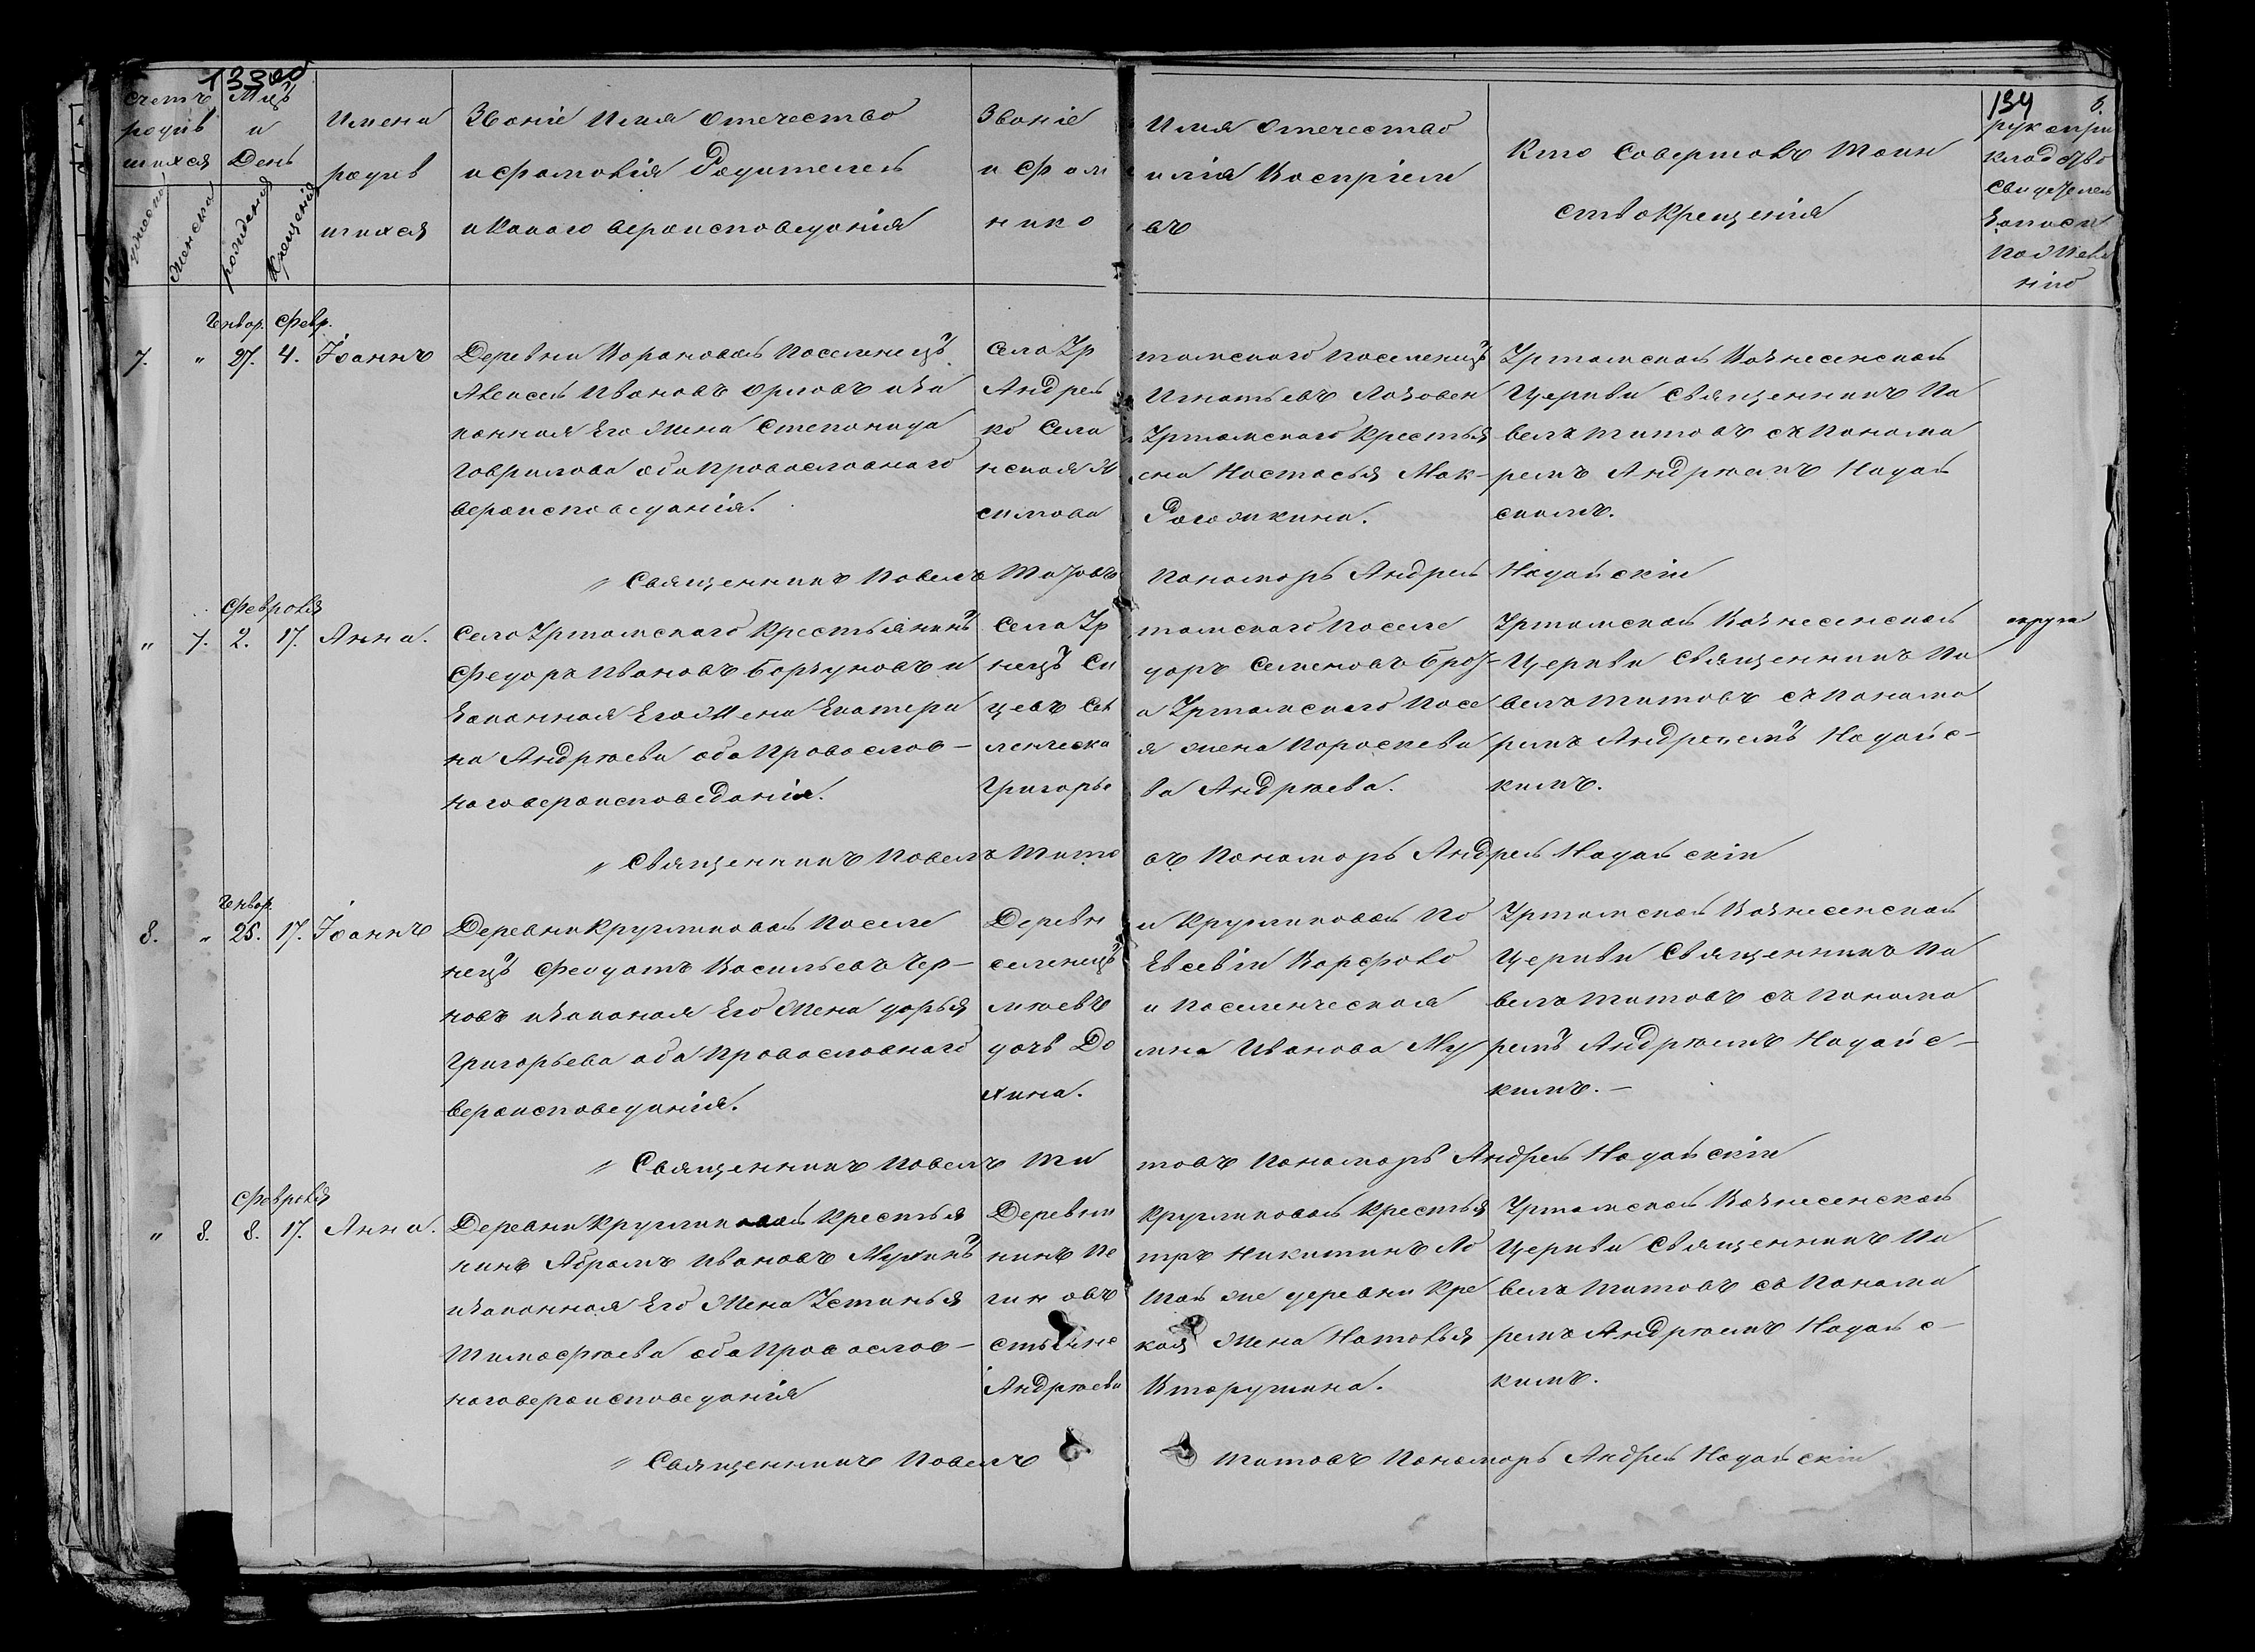 133об
134
6.
счетъ родив шихся
Мцъ и День
Имена родив шихся
Званіе Имя Отечество и Фамилія Родителей и Какого вероисповеданія
Званіе Имя Отечество и Фамилія Воспріемниковъ
Кто Совершалъ Таинство Крещенія
рукоприкладство Свидетелей Записи по Желанію
Женска
рожденія
Крещенія
Генвар. Февр.
7. " 27. 4. Іоаннъ
Деревни Вороновой Поселенецъ
Алексей Ивановъ Орловъ и За
конная Его Жена Степанида
Гаврилова оба Православнаго
вероисповеданія.
Села Ур тамского Поселенецъ
Андрей Игнатьевъ Лазовен
ко Села Уртамского Крестья
нская Жена Настасья Мак-
симова Рогожкина.
Уртамской Вознесенской
Церкви Священникъ Па
велъ Титовъ съ Понома
ремъ Андреемъ Надай
скимъ.
" Священникъ Павелъ Титовъ Пономарь Андрей Надайскій
Февраля
" 7. 2. 17. Анна.
Села Уртамского Крестьянинъ
Федоръ Ивановъ Боргуновъ и
Законная Его Жена Екатери
на Андреева оба Православ-
наго вероисповеданія.
Села Ур тамского Поселе
нецъ Си доръ Семеновъ
а Уртамского Посе
ленческа я жена Пороскева
Григорье ва Андреева.
Уртамской Вознесенской
Церкви Священникъ Па
велъ Титовъ съ Понома
ремъ Андреемъ Надайс-
кимъ.
" Священникъ Павелъ Титовъ Пономарь Андрей Надайскій
Генвар.
8. " 25. 17. Іоаннъ
Деревни Кругликовой Поселе
нецъ Феодотъ Васильевъ Чер-
новъ и Законая Его Жена Дарья
Григорьева оба Православнаго
вероисповеданія.
Деревн и Кругликовой По
селенецъ Евсевій Варфоло
меевъ и Поселенческая
дочь До мна Иванова Му
хина.
Уртамской Вознесенской
Церкви Священникъ Па
велъ Титовъ съ Понома
ремъ Андреемъ Надайс-
кимъ.-
" Священникъ Павелъ Титовъ Пономарь Андрей Надайскій
Февраля
" 8. 8. 17. Анна.
Деревни Кругликовой Крестья
нинъ Абрамъ Ивановъ Мухинъ
и Законная Его Жена Устинья
Тимофеева оба Православ-
наго вероисповеданія
Деревни Кругликовой Крестья
нинъ Пе тръ Никитинъ Ло
гиновъ той же деревни Кре
стьянс кая Жена Наталья
Андреева Вторушина.
Уртамской Вознесенской
Церкви Священникъ Па
велъ Титовъ съ Понома
ремъ Андреемъ Надайс-
кимъ.
" Священникъ Павелъ Титовъ Пономарь Андрей Надайскій